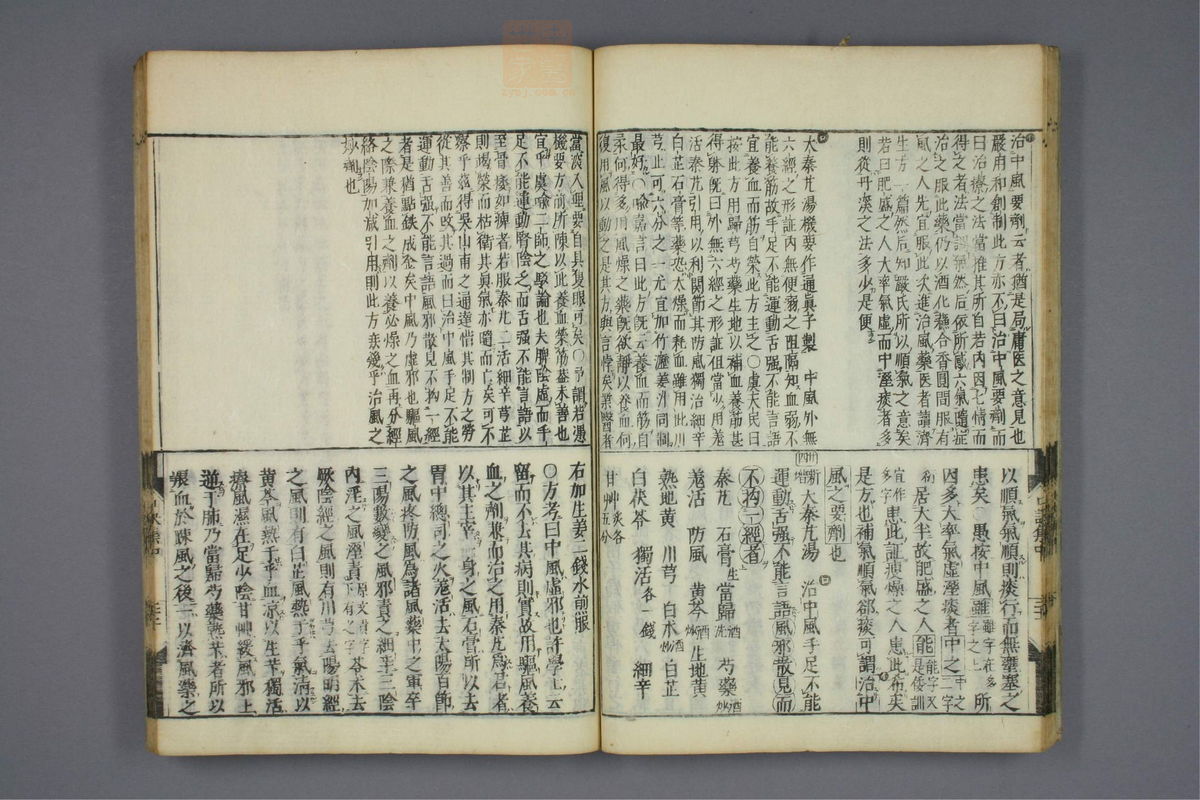 治中風要劑云者猶是局庸医之意見也
嚴用和創制此方亦不曰治中風要劑而
曰治療之法當推其所自若内因七情而
得之者法當調氣然后依所感六氣隨症
治之服此藥仍以酒化蘇合香圓間服有
風之人先宜服此次進治風藥医者讀濟
生方一篇然后知嚴氏所以順氣之意矣
若曰肥盛之人大率氣虛而中溼痰者多
則從丹溪之法多少是便
大秦艽湯機要作通眞子製 中風外無
六經之形証内無便溺之阻隔知血弱不
能養筋故手足不能運動舌强不能言語
宜養血而筋自榮此方主之〇虞天民曰
按此方用歸芎芍藥生地以補血養筋甚
得躰既曰外無六經之形証但當少用羗
活秦艽引用以利關節其防風獨活細辛
白芷石膏等藥恐太燥而耗血雖用此川
芎止可六分之一尤宜加竹瀝姜汁同劑
最好〇喻嘉言曰此方既云養血而筋自
榮何得多用風燥之藥既欲靜以養血何
復用風以動之是其方與言悖矣業醫者
以順氣氣順則痰行而無壅塞之
患矣〇愚按中風雖 雖字在多字之上 所
因多大率氣虛溼痰者中之 中之二字
衍 居大半故肥盛之人 能 能字又是倭訓
宜作多字 患此証瘦燥之人患此希矣
是方也補氣順氣郤痰可謂治中
風之要劑也
新增 大秦艽湯 治中風手足不能
運動舌强不能言語風邪散見而
不拘一經者
秦艽 石膏 生 當歸 酒洗 芍藥 酒炒
羗活 防風 黄芩 酒炒 生地黄
熟地黄 川芎 白朮 炒 白芷
白茯苓 獨活 各一錢 細辛
甘艸 炙各五分
當深入理要自具隻眼可矣〇予謂若憑
機要方前所陳以此養血榮筋葢未善也
宜乎虞喻二師之駁論也大腑陰虛而手
足不能運動腎陰乏而舌强不能言語以
至骨痿如揀者若服秦艽二活細辛芎芷
則竭榮而枯衛其眞氣亦隨而亡矣可不
察乎茲得吳山甫之通達惜其制方之勞
從其善而改其過而曰治中風手足不能
運動舌强不能言語風邪散見不拘一經
者是猶點鉄成金矣中風乃虛邪也驅風
之際兼養血之劑以養必燥之血再分經
絡陰陽加减引用則此方亲幾乎治風之
妙劑也
右加生姜二錢水煎服
〇方考曰中風虛邪也許學士云
留而不去其病則實故用驅風養
血之劑兼而治之用秦艽爲君者
以其主宰一身之風石膏所以去
胃中總司之火羗活去太陽百節
之風疼防風為諸風藥中之軍卒
三陽數變之風邪責之細辛三陰
内淫之風溼責 原文責字下有之字 苓朮去
厥陰經之風則有川芎去陽明經
之風則有白芷風熱干乎氣清以
黄芩風熱干乎血凉以生芐獨活
療風濕在足少陰甘艸緩風邪上
逆干肺乃當歸芍藥熟芐者所以
飬血於疎風之後一以濟風藥之